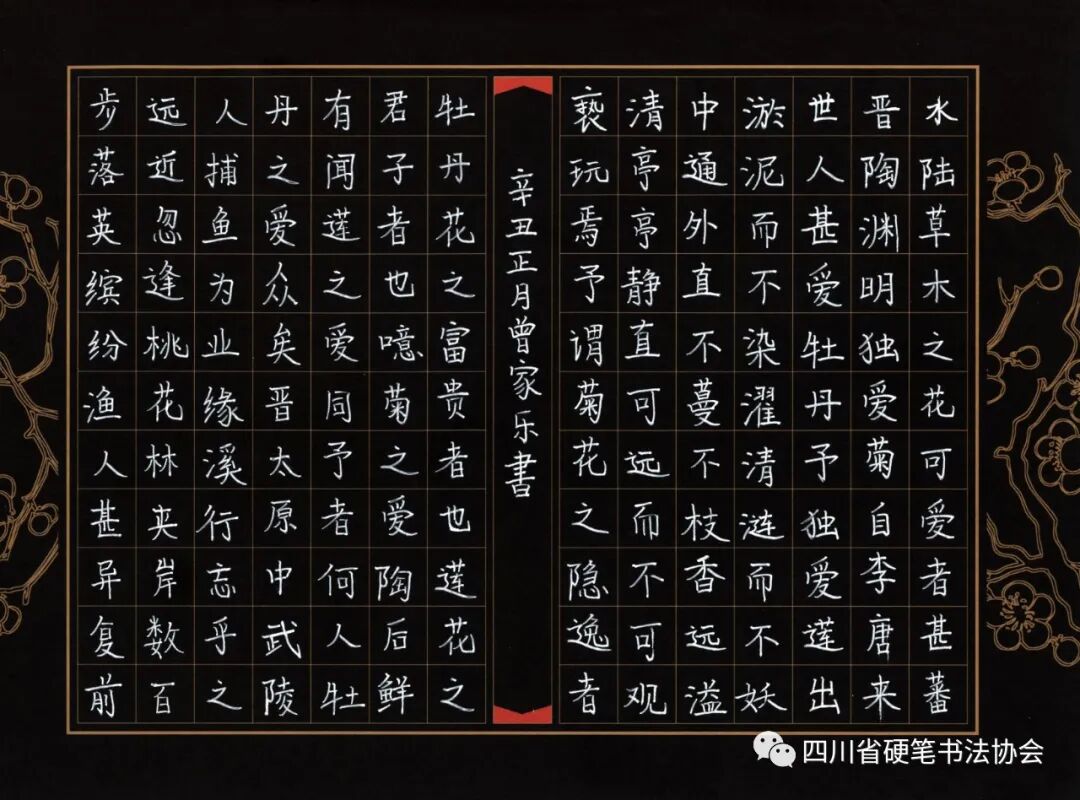 水陆草木之花可爱者甚蕃
晋陶渊明独爱菊自李唐来
世人甚爱牡丹予独爱莲出
淤泥而不染濯清涟而不妖
中通外直不蔓不枝香远溢
清亭亭静直可远而不可观
亵玩焉予谓菊花之隐逸者
辛丑正月曾家乐書
牡丹花之富贵者也莲花之
君子者也噫菊之爱陶后鲜
有闻莲之爱同予者何人牡
丹之爱众矣晋太原中武陵
人捕鱼为业缘溪行忘乎之
远近忽逢桃花林夹岸数百
步落英缤纷渔人甚异复前
四川省硬笔书法协会